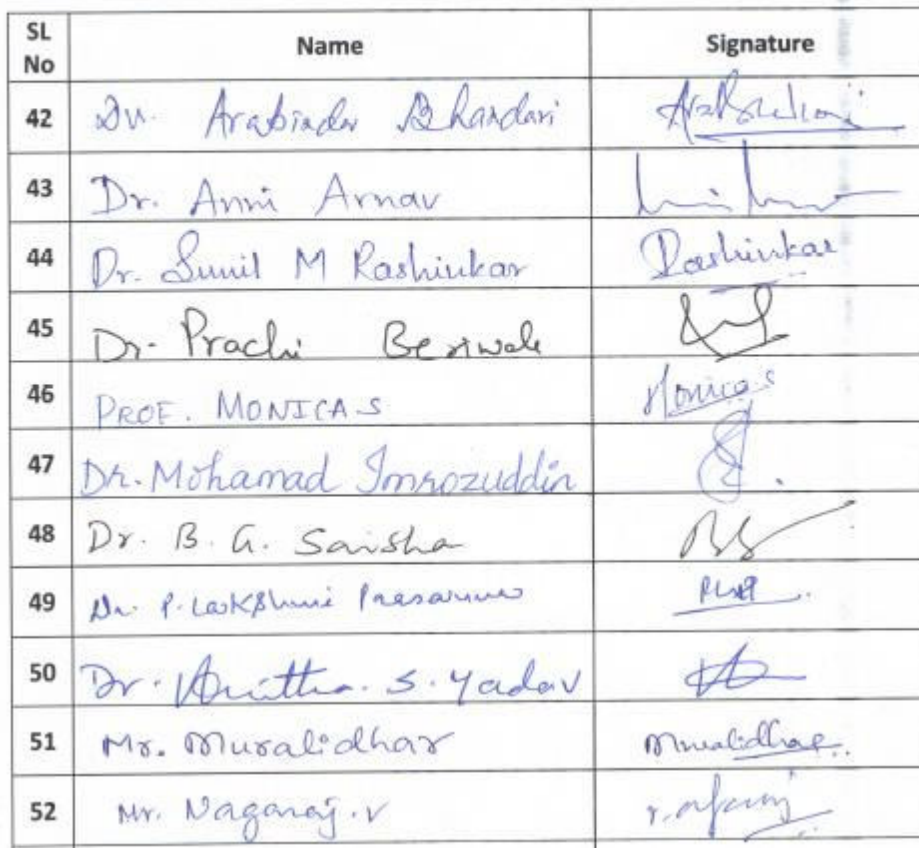 SL No Name Signature
42 Dr. Arabinda Bhandari
43 Dr. Anni Arnav
44 Dr. Sunil M Rashinkar Rashinkar
45 Dr. Prachi Beriwala
46 PROF. MONICA S Monica S
47 Dr. Mohamad Imrozuddin
48 Dr. B. G. Saisha
49 Dr. P. Lakshmi Prasanna
50 Dr. S. Yadav
51 Mr. Muralidhar Muralidhar
52 Mr. Nagaraj. V